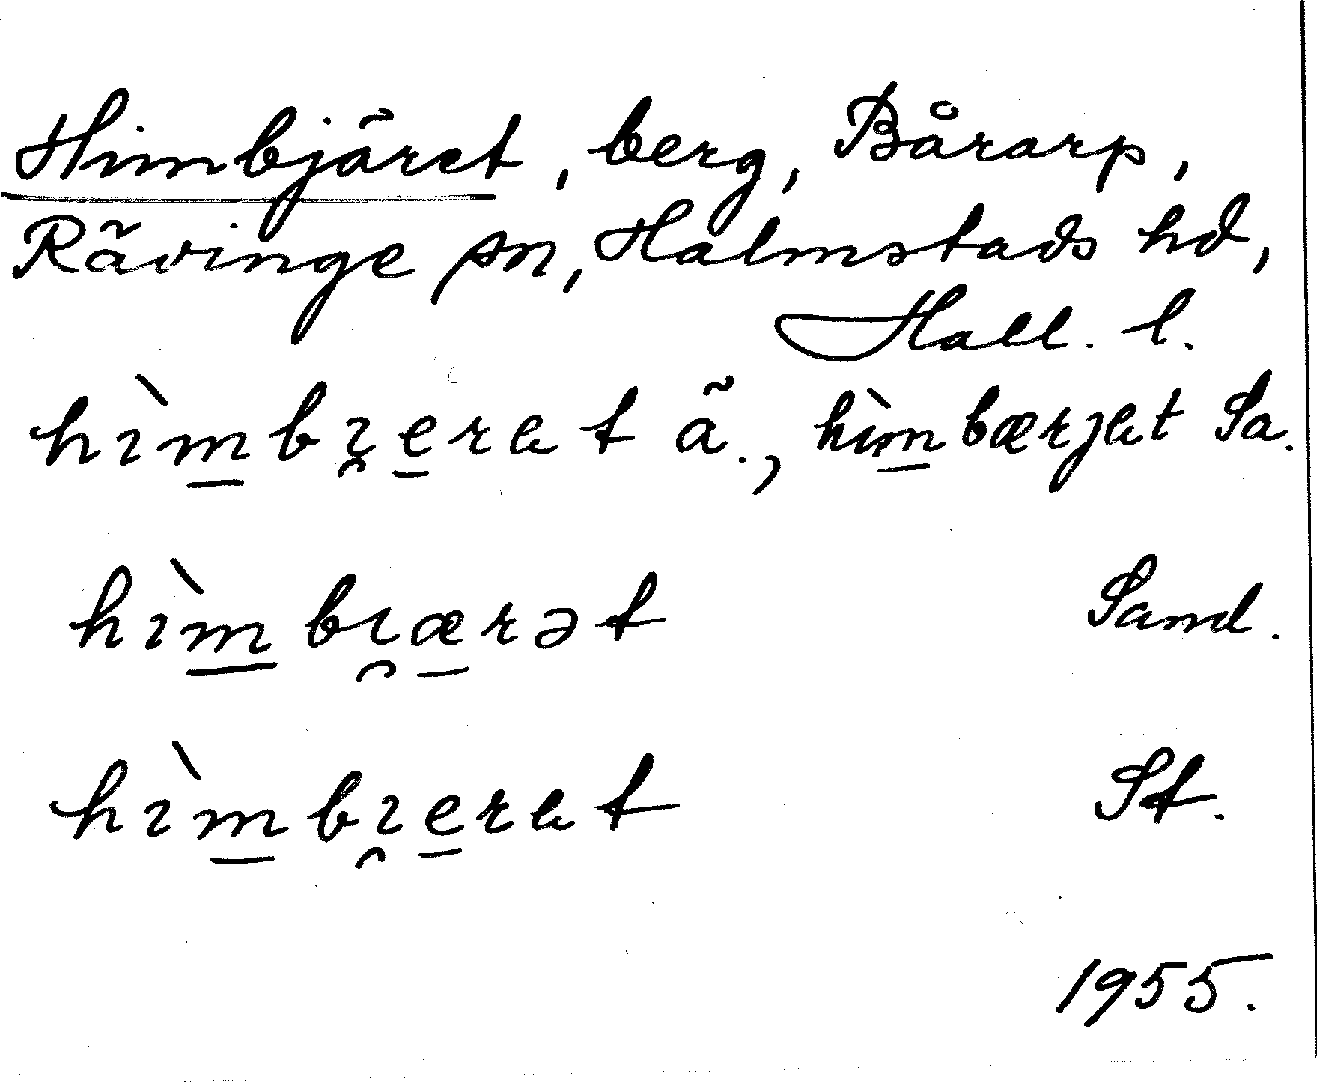 Himbjäret, berg, Bårarp,
Rävinge sn, Halmstads hd,
Hall. l.
hìm̲bı̯e̲rɐt ä., hìm̲bærjɐt Sa.
hìm̲bı̯æ̲rət Sand.
hìm̲bı̯e̲rɐt St.
1955.